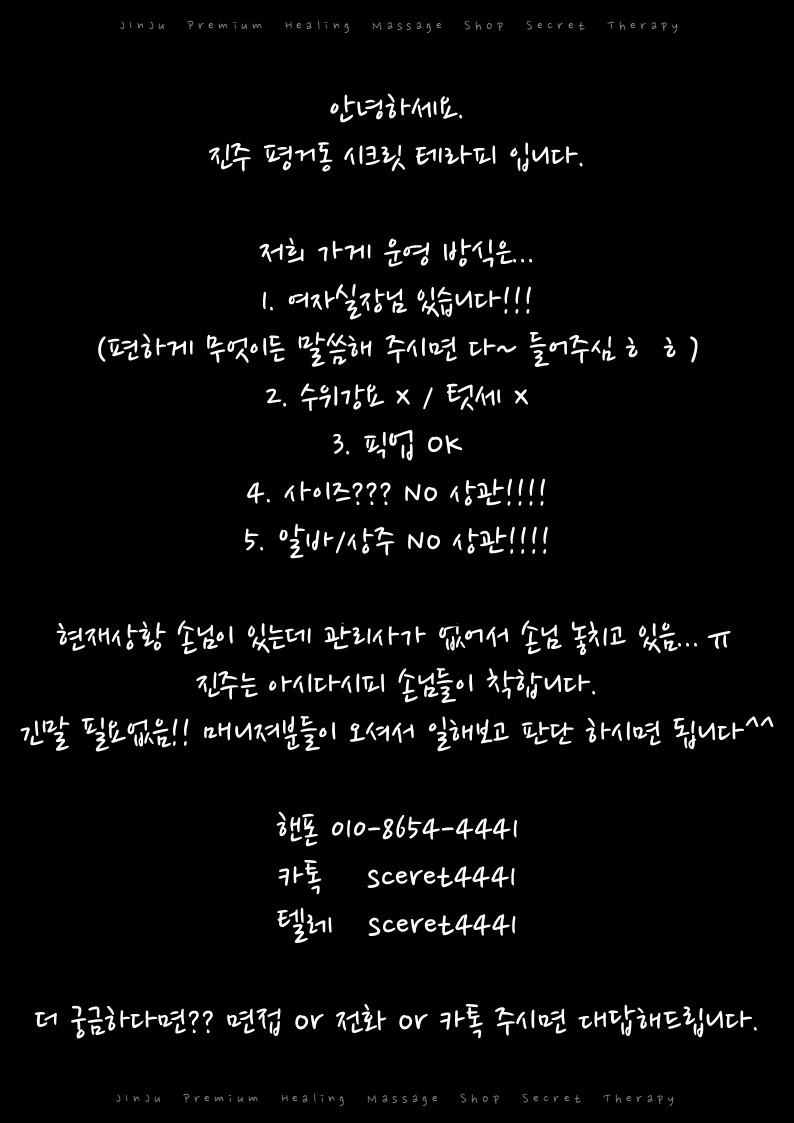 JinJu Premium Healing Massage Shop Secret Therapy
안녕하세요.
진주 평거동 시크릿 테라피 입니다.
저희 가게 운영 방식은...
1. 여자실장님 있습니다!!!
(편하게 무엇이든 말씀해 주시면 다~ 들어주심 ㅎ ㅎ)
2. 수위강요 x / 텃세 x
3. 픽업 OK
4. 사이즈??? NO 상관!!!!
5. 알바/상주 NO 상관!!!!
현재상황 손님이 있는데 관리사가 없어서 손님 놓치고 있음... ㅠ
진주는 아시다시피 손님들이 착합니다.
긴말 필요없음!! 매니져분들이 오셔서 일해보고 판단 하시면 됩니다^^
핸폰 010-8654-4441
카톡 sceret4441
텔레 sceret4441
더 궁금하다면?? 면접 or 전화 or 카톡 주시면 대답해드립니다.
JinJu Premium Healing Massage Shop Secret Therapy